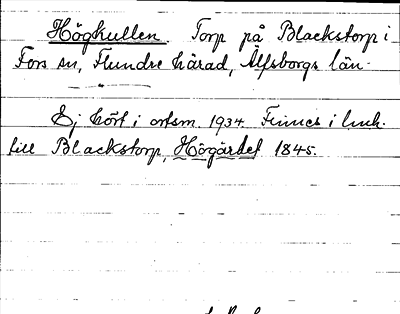 Högkullen. Torp på Blackstorp i
Fors sn, Flundre härad, Älfsborgs län.
Ej hört i ortsm. 1934. Finnes i
till Blackstorp, Högärdet 1845.